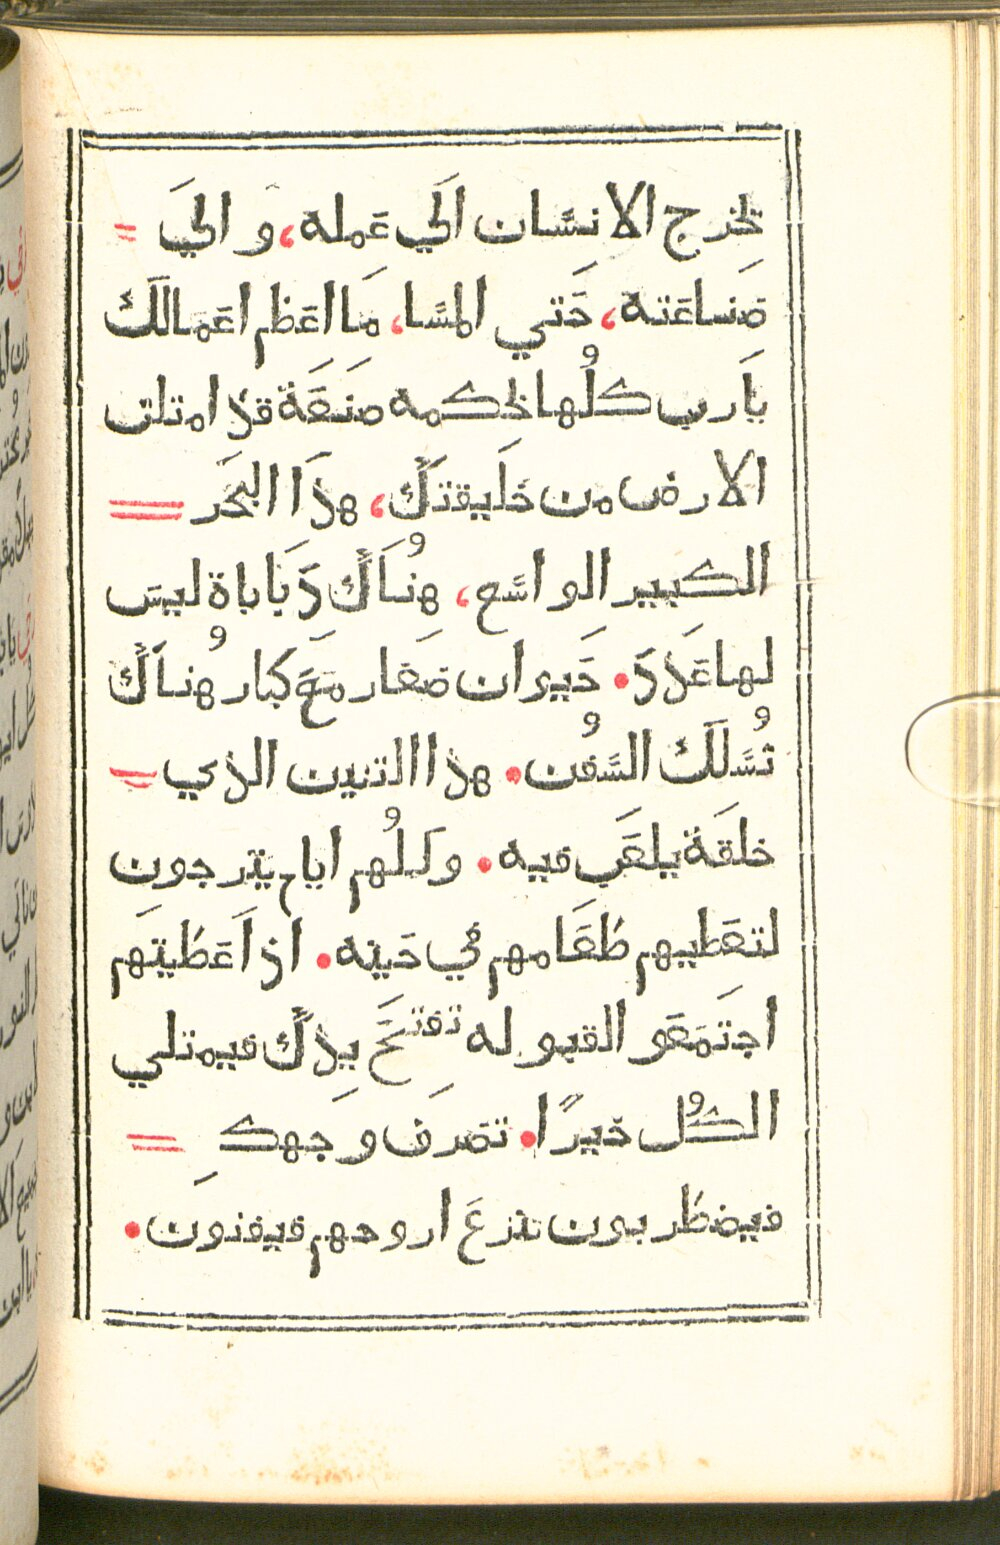 يخرج الانسان الي عمله، والي =
صناعته، حتي المسا، ما اعظم اعمالك
يارب كلها بحكمه صنعة قد امتلت
الارض من خليقتك، هذا البحر =
الكبير الواسع، هناك دبابات ليس
لها عدد• حيوان صغار مع كبار هناك
تسلك السفن• هذا التنين الذي =
خلقة يلعب فيه• وكلهم اياك يترجون
لتعطيهم طعامهم في حينه• اذ اعطيتهم
اجتمعو القبوله تفتح يدك فيمتلي
الكل خيرًا• تصرف وجهك =
فيضطربون تنزع اروحهم فيفنون•